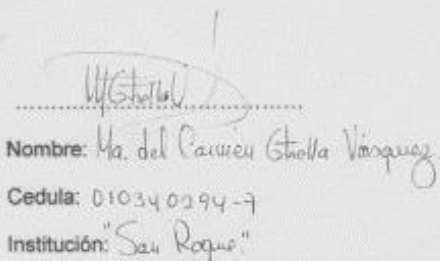 Nombre: Ma. del Carmen Estrella Vásquez
Cedula: 010340294-7
Institución: "San Roque."